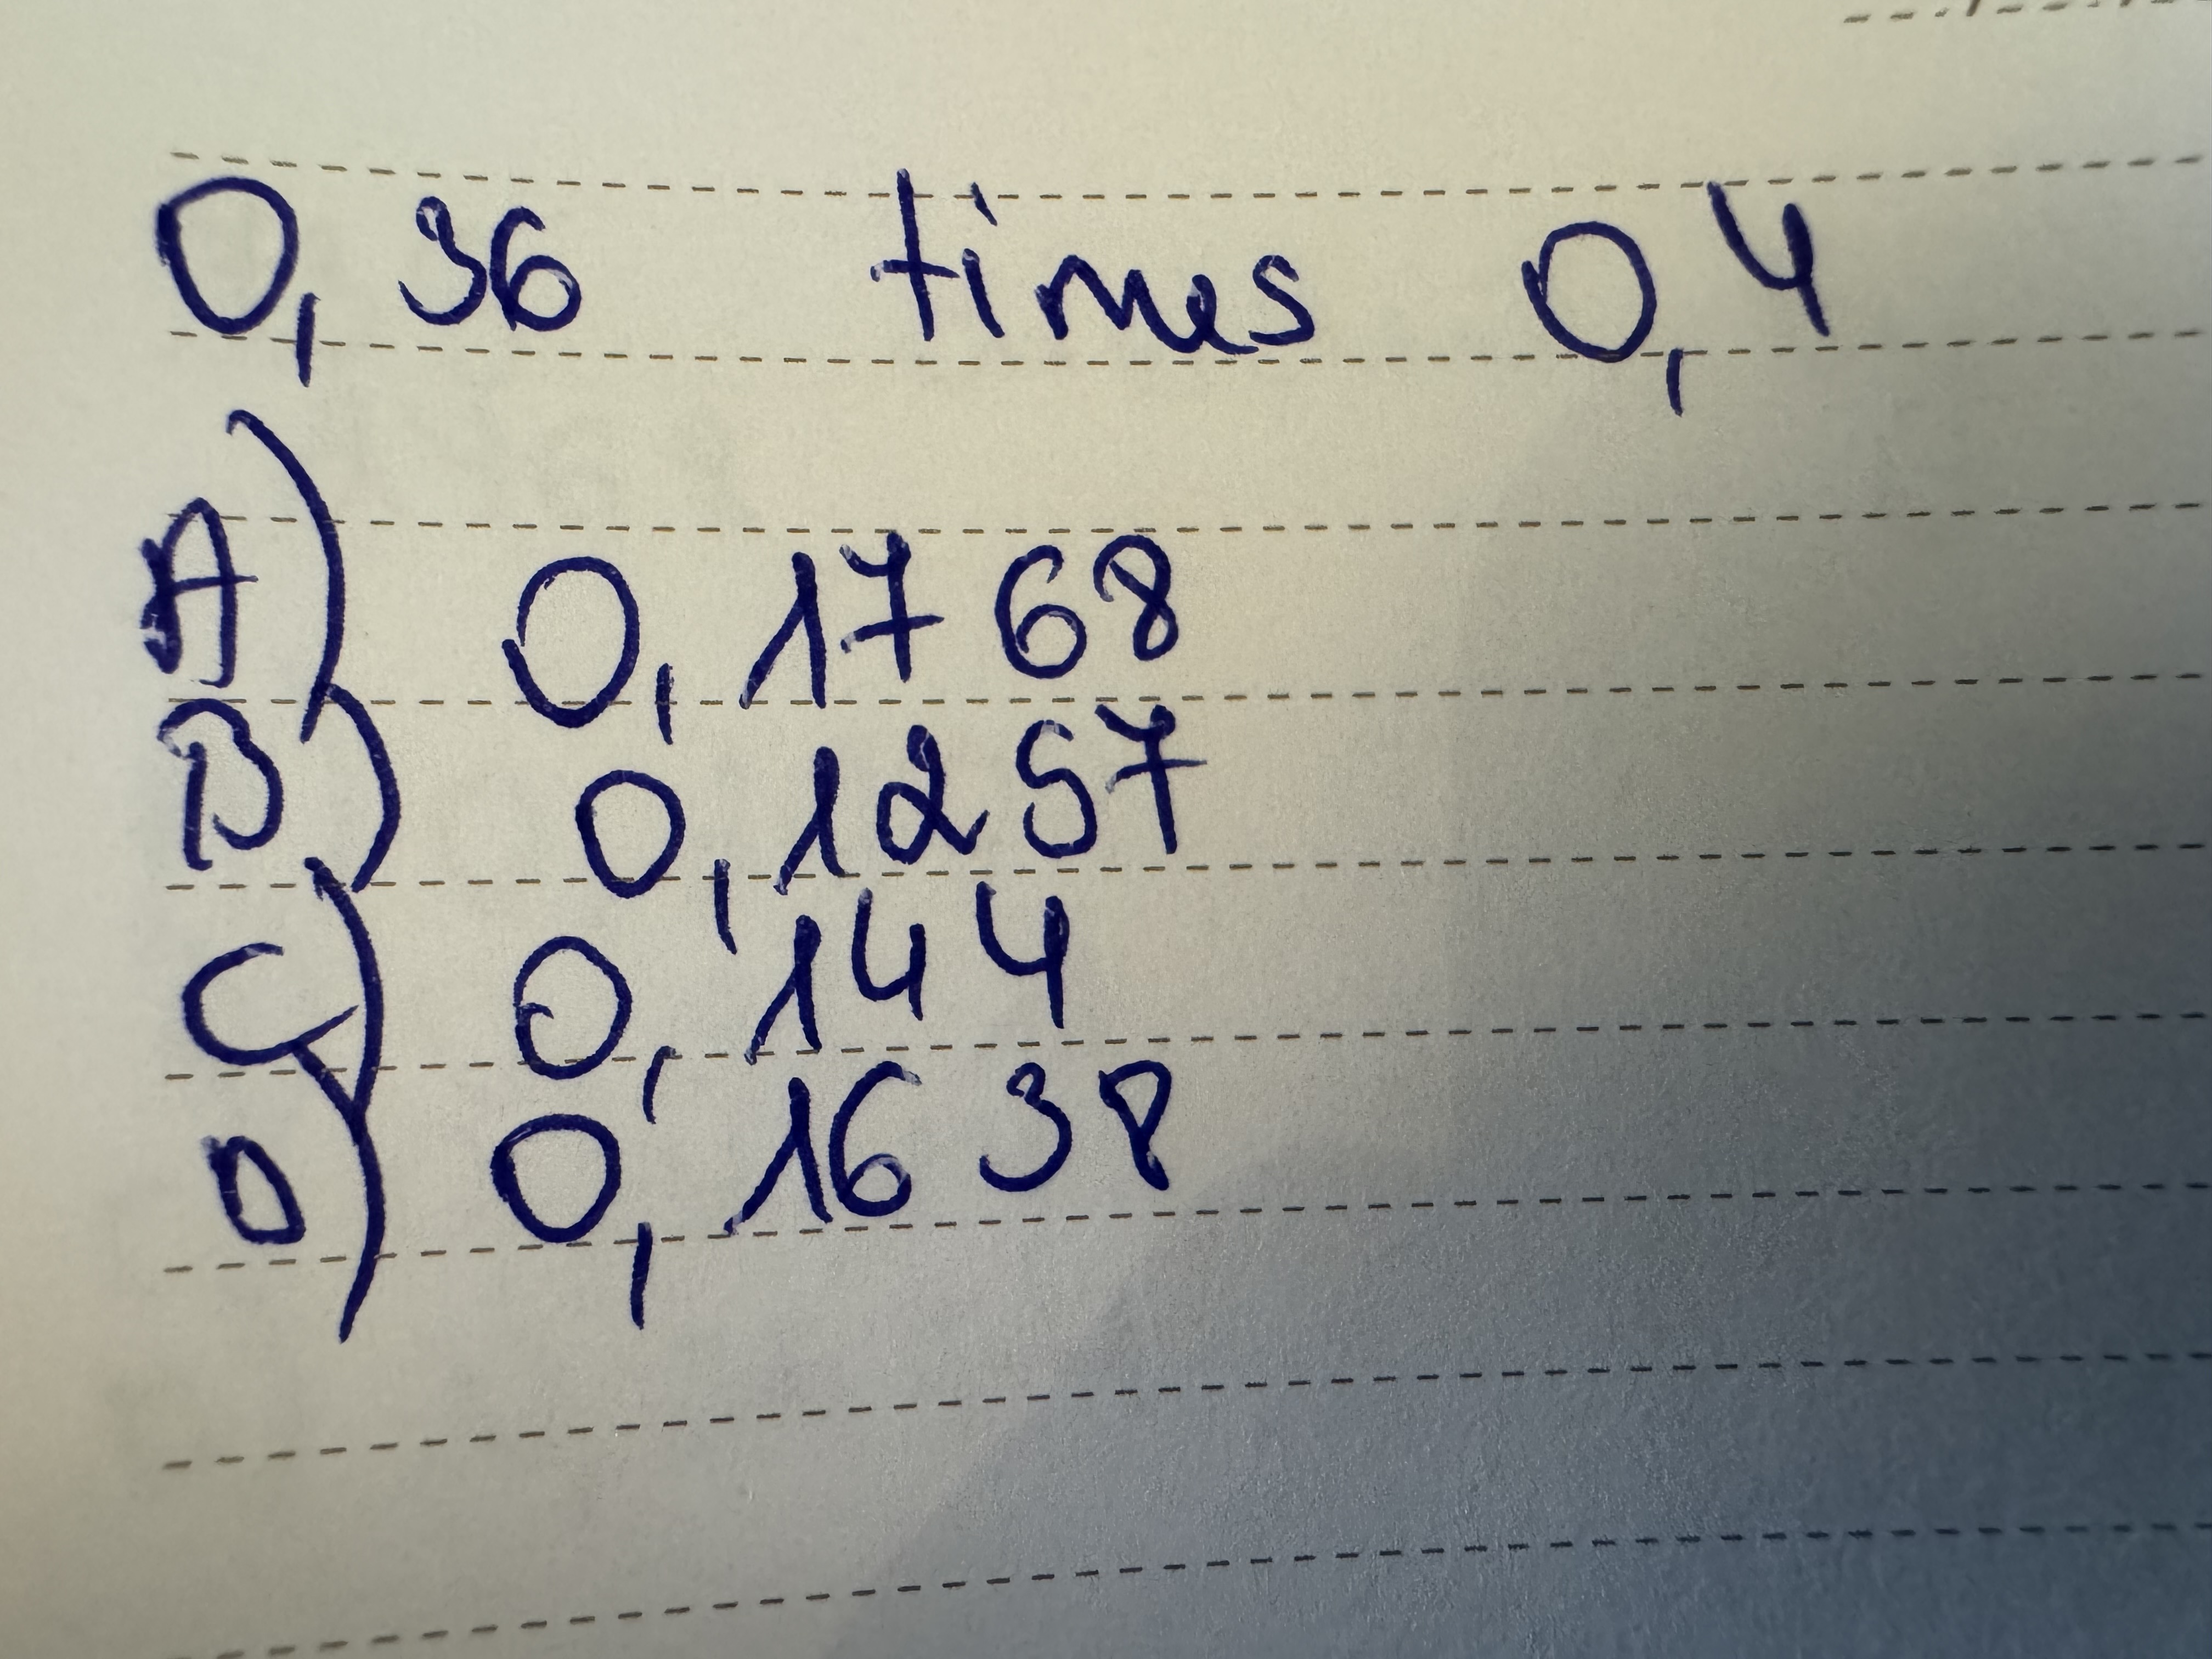 0,36 times 0,4
A) 0,1768
B) 0,1257
C) 0,144
D) 0,1638